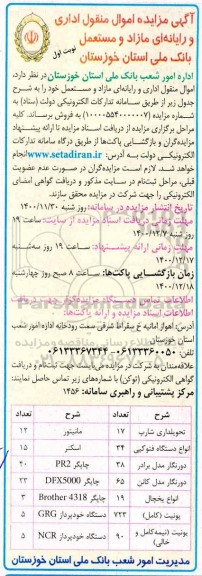 آگهی مزایده اموال منقول اداری
و رایانه‌ای مازاد و مستعمل
بانک ملی استان خوزستان
نوبت اول
اداره امور شعب بانک ملی استان خوزستان در نظر دارد،
اموال منقول اداری و رایانه‌ای مازاد و مستعمل خود را به شرح
جدول زیر از طریق سامانه تدارکات الکترونیکی دولت (ستاد) به
شماره مزایده (۱۰۰۰۰۵۵۴۰۰۰۰۰۷) به فروش برساند. کلیه
مراحل برگزاری مزایده از دریافت اسناد مزایده تا ارائه پیشنهاد
مزایده‌گران و بازگشایی پاکت‌ها از طریق درگاه سامانه تدارکات
الکترونیکی دولت به آدرس: www.setadiran.ir انجام
خواهد شد. لازم است مزایده‌گران در صورت عدم عضویت
قبلی، مراحل ثبت‌نام در سایت مذکور و دریافت گواهی امضای
الکترونیکی را جهت شرکت در مزایده محقق سازند.
تاریخ انتشار مزایده در سامانه: روز شنبه ۱۴۰۰/۱۱/۳۰
مهلت زمانی دریافت اسناد مزایده از سایت: ساعت ۱۹
روز شنبه ۱۴۰۰/۱۲/۷
مهلت زمانی ارائه پیشنهاد: ساعت ۱۹ روز سه‌شنبه
۱۴۰۰/۱۲/۱۷
زمان بازگشایی پاکت‌ها: ساعت ۸ صبح روز چهارشنبه
۱۴۰۰/۱۲/۱۸
اطلاعات تماس دستگاه مزایده‌گزار جهت دریافت
اطلاعات اسناد مزایده و ارائه پاکت‌ها:
آدرس: اهواز امانیه خ سقراط شرقی سمت رودخانه اداره امور شعب
استان خوزستان
تلفن: ۰۶۱۳۳۳۶۰۰۵۰–۰۶۱۳۳۳۶۷۳۴۴
علاقه‌مندان به شرکت در مزایده می‌بایست جهت ثبت‌نام و دریافت
گواهی الکترونیکی (توکن) با شماره‌های زیر تماس حاصل نمایند:
مرکز پشتیبانی و راهبری سامانه: ۱۴۵۶
شرح تعداد شرح تعداد
تحویلداری شارپ ۱۷ مانیتور ۱۲
انواع دستگاه فتوکپی ۳۴ اسکنر ۱۵
دورنگار مدل برادر ۳۸ چاپگر PR2 ۴۰
دورنگار مدل کانن ۶۵ چاپگر DFX5000 ۲۲
انواع یخچال ۱۹ چاپگر Brother 4318 ۳
یونیت (کامل) ۷۲۳ دستگاه خودپرداز GRG ۵
یونیت (نیمه‌کامل و خالی) ۹۰ دستگاه خودپرداز NCR ۵
مدیریت امور شعب بانک ملی استان خوزستان